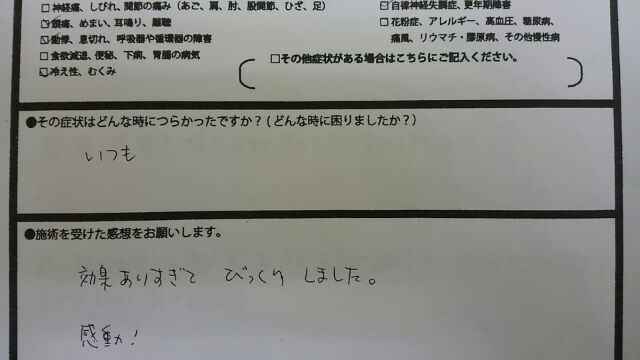 □神経痛、しびれ、関節の痛み（あご、肩、肘、股関節、ひざ、足）
☑頭痛、めまい、耳鳴り、難聴
☑動悸、息切れ、呼吸器や循環器の障害
□食欲減退、便秘、下痢、胃腸の病気
☑冷え性、むくみ
☑自律神経失調症、更年期障害
□花粉症、アレルギー、高血圧、糖尿病、
痛風、リウマチ・膠原病、その他慢性病
□その他症状がある場合はこちらにご記入ください。
●その症状はどんな時につらかったですか？(どんな時に困りましたか？)
いつも
●施術を受けた感想をお願いします。
効果ありすぎて びっくりしました。
感動!